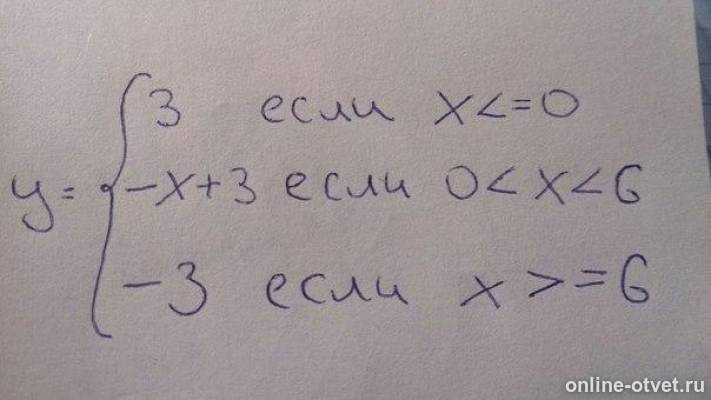 3 если x<=0
y= { -x+3 если 0<x<6
-3 если x>=6
online-otvet.ru